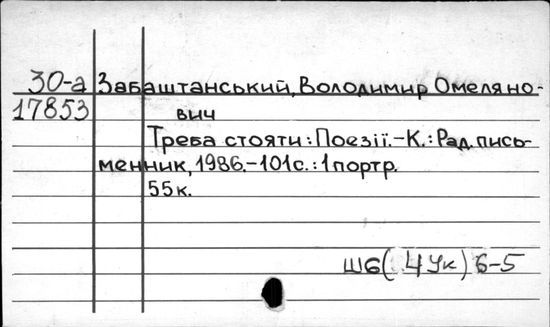 30-а Забаштанський, Володимир Омеляно-
17853 вич
Треба стояти: Поезії.-К.: Рад. пись-
менник, 1986.-101с.: 1 портр.
55к.
Ш6(4Ук)6-5